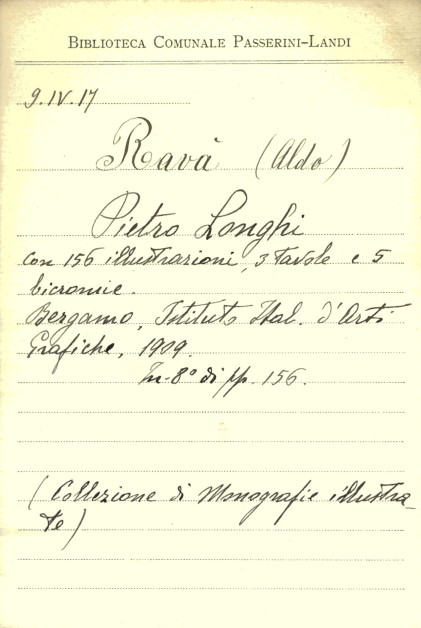 BIBLIOTECA COMUNALE PASSERINI-LANDI
9.IV.17
Ravà (Aldo)
Pietro Longhi
con 156 illustrazioni, 3 tavole e 5
bicromie.
Bergamo, Istituto Ital. d'Arti
Grafiche, 1909.
In-8° di pp. 156.
(Collezione di Monografie illustra-
te)